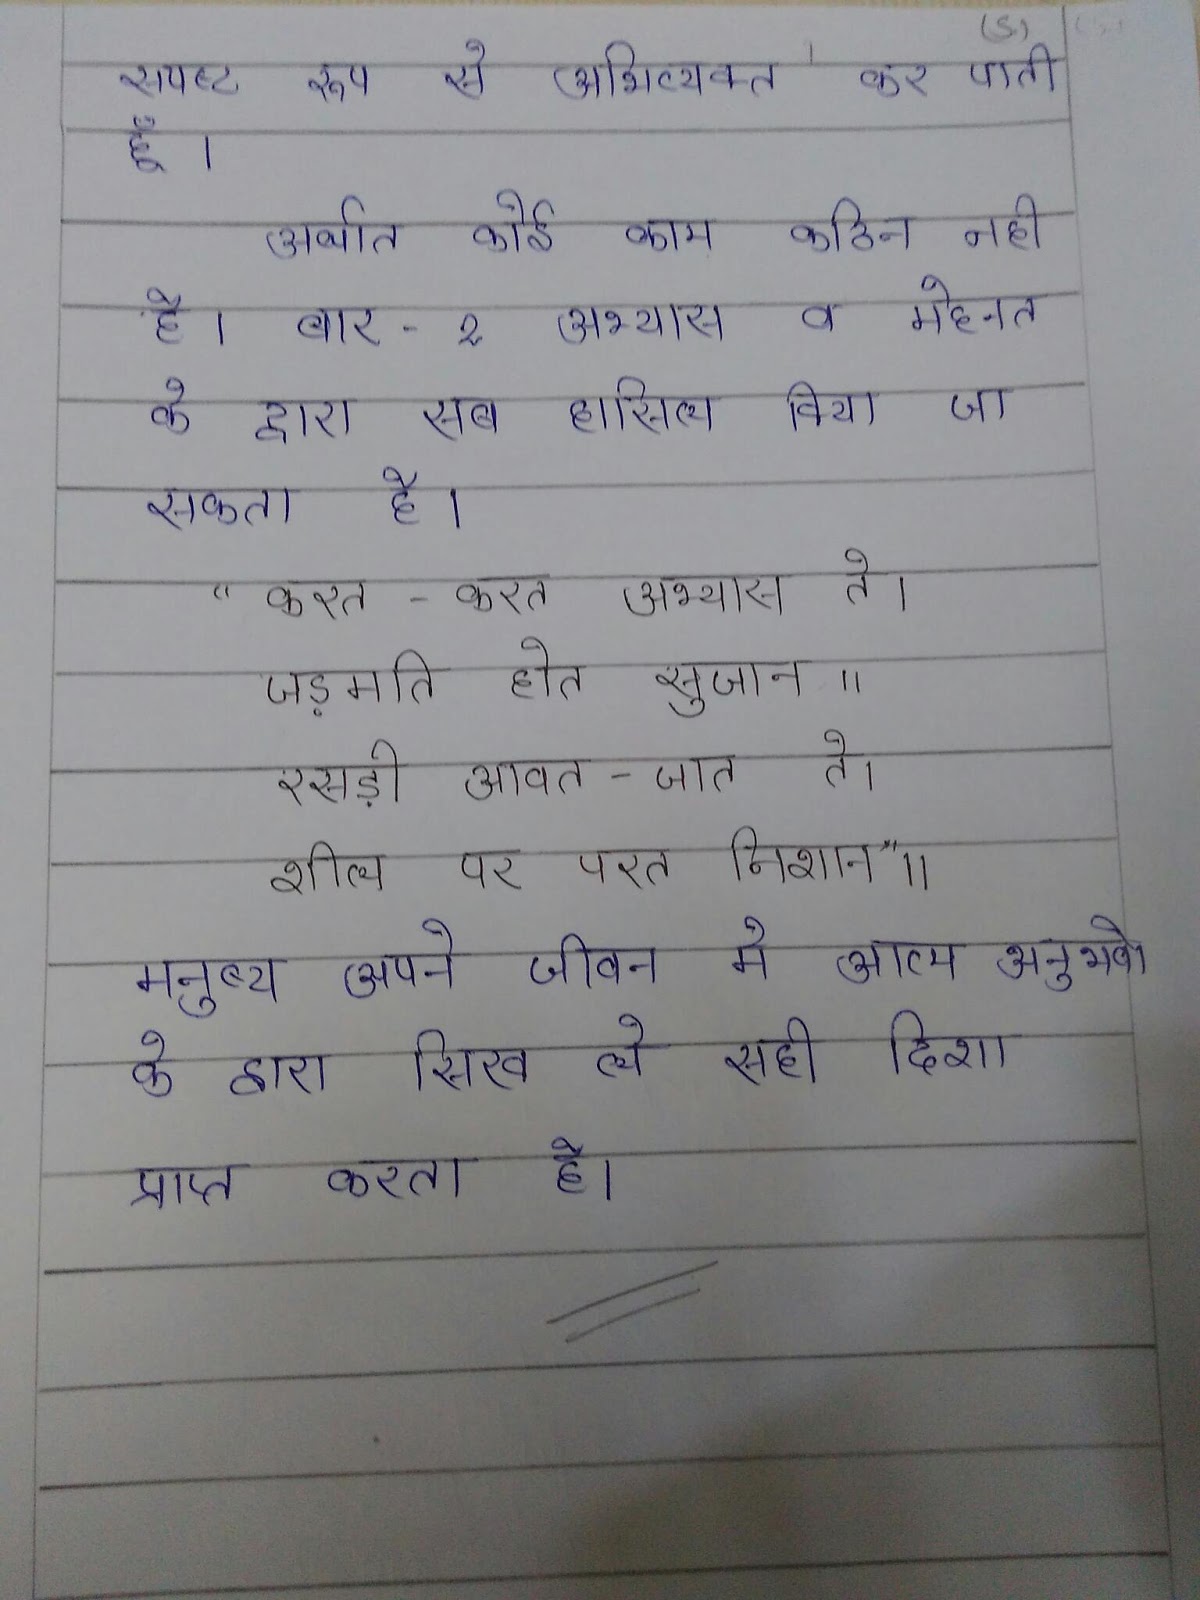 (5)
सपष्ट रूप से अभिव्यक्त कर पाती
हूँ ।
अर्थात कोई काम कठिन नही
है । बार - २ अभ्यास व मेहनत
के द्वारा सब हासिल किया जा
सकता है ।
" करत - करत अभ्यास ते ।
जड़मति होत सुजान ॥
रसड़ी आवत - जात ते ।
शील पर परत निशान" ॥
मनुष्य अपने जीवन मे आत्म अनुभवो
के द्वारा सिख ले सही दिशा
प्राप्त करता है ।